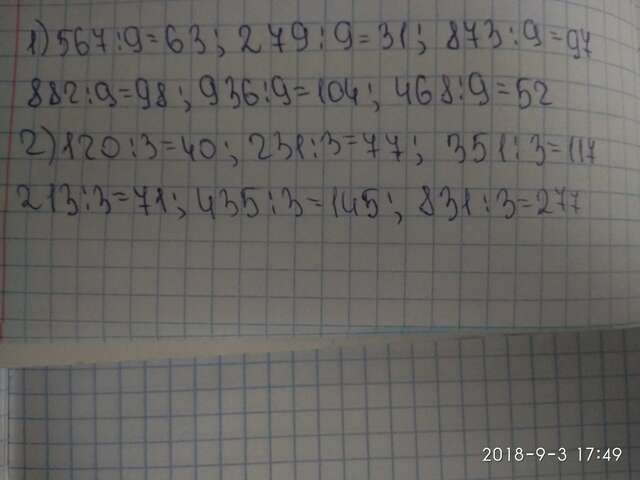 1) 567:9=63; 279:9=31; 873:9=97
882:9=98; 936:9=104; 468:9=52
2) 120:3=40; 231:3=77; 351:3=117
213:3=71; 435:3=145; 831:3=277
2018-9-3 17:49